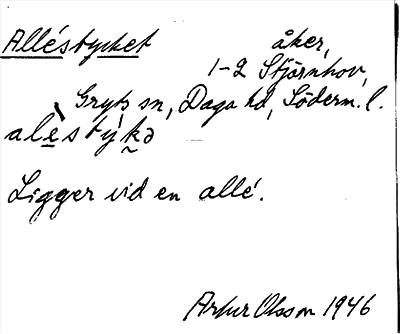 Alléstycket åker,
1-2 Stjärnhov,
Gryts sn, Daga hd, Söderm. l.
alèstýkə
Ligger vid en allé.
Artur Olsson 1946